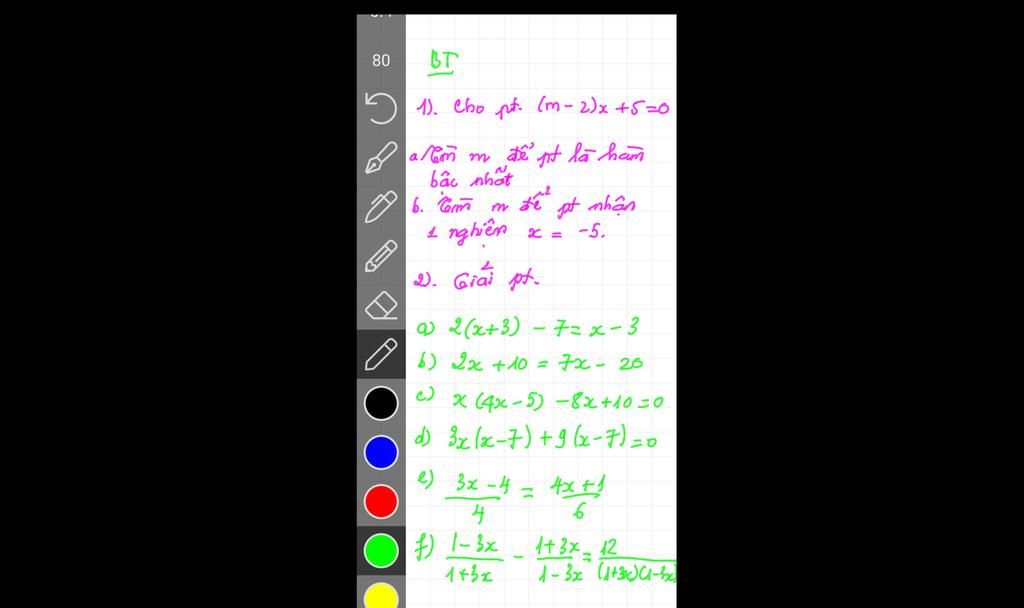 80
BT
1). Cho pt. (m-2)x+5=0
a. Tìm m để pt là hàm
bậc nhất
b. Tìm m để pt nhận
1 nghiệm x = -5.
2). Giải pt.
a) 2(x+3) - 7 = x - 3
b) 2x + 10 = 7x - 20
c) x(4x-5) - 8x + 10 = 0
d) 3x(x-7) + 9(x-7) = 0
e) (3x-4)/4 = (4x+1)/6
f) (1-3x)/(1+3x) - (1+3x)/(1-3x) = 12/((1+3x)(1-3x))